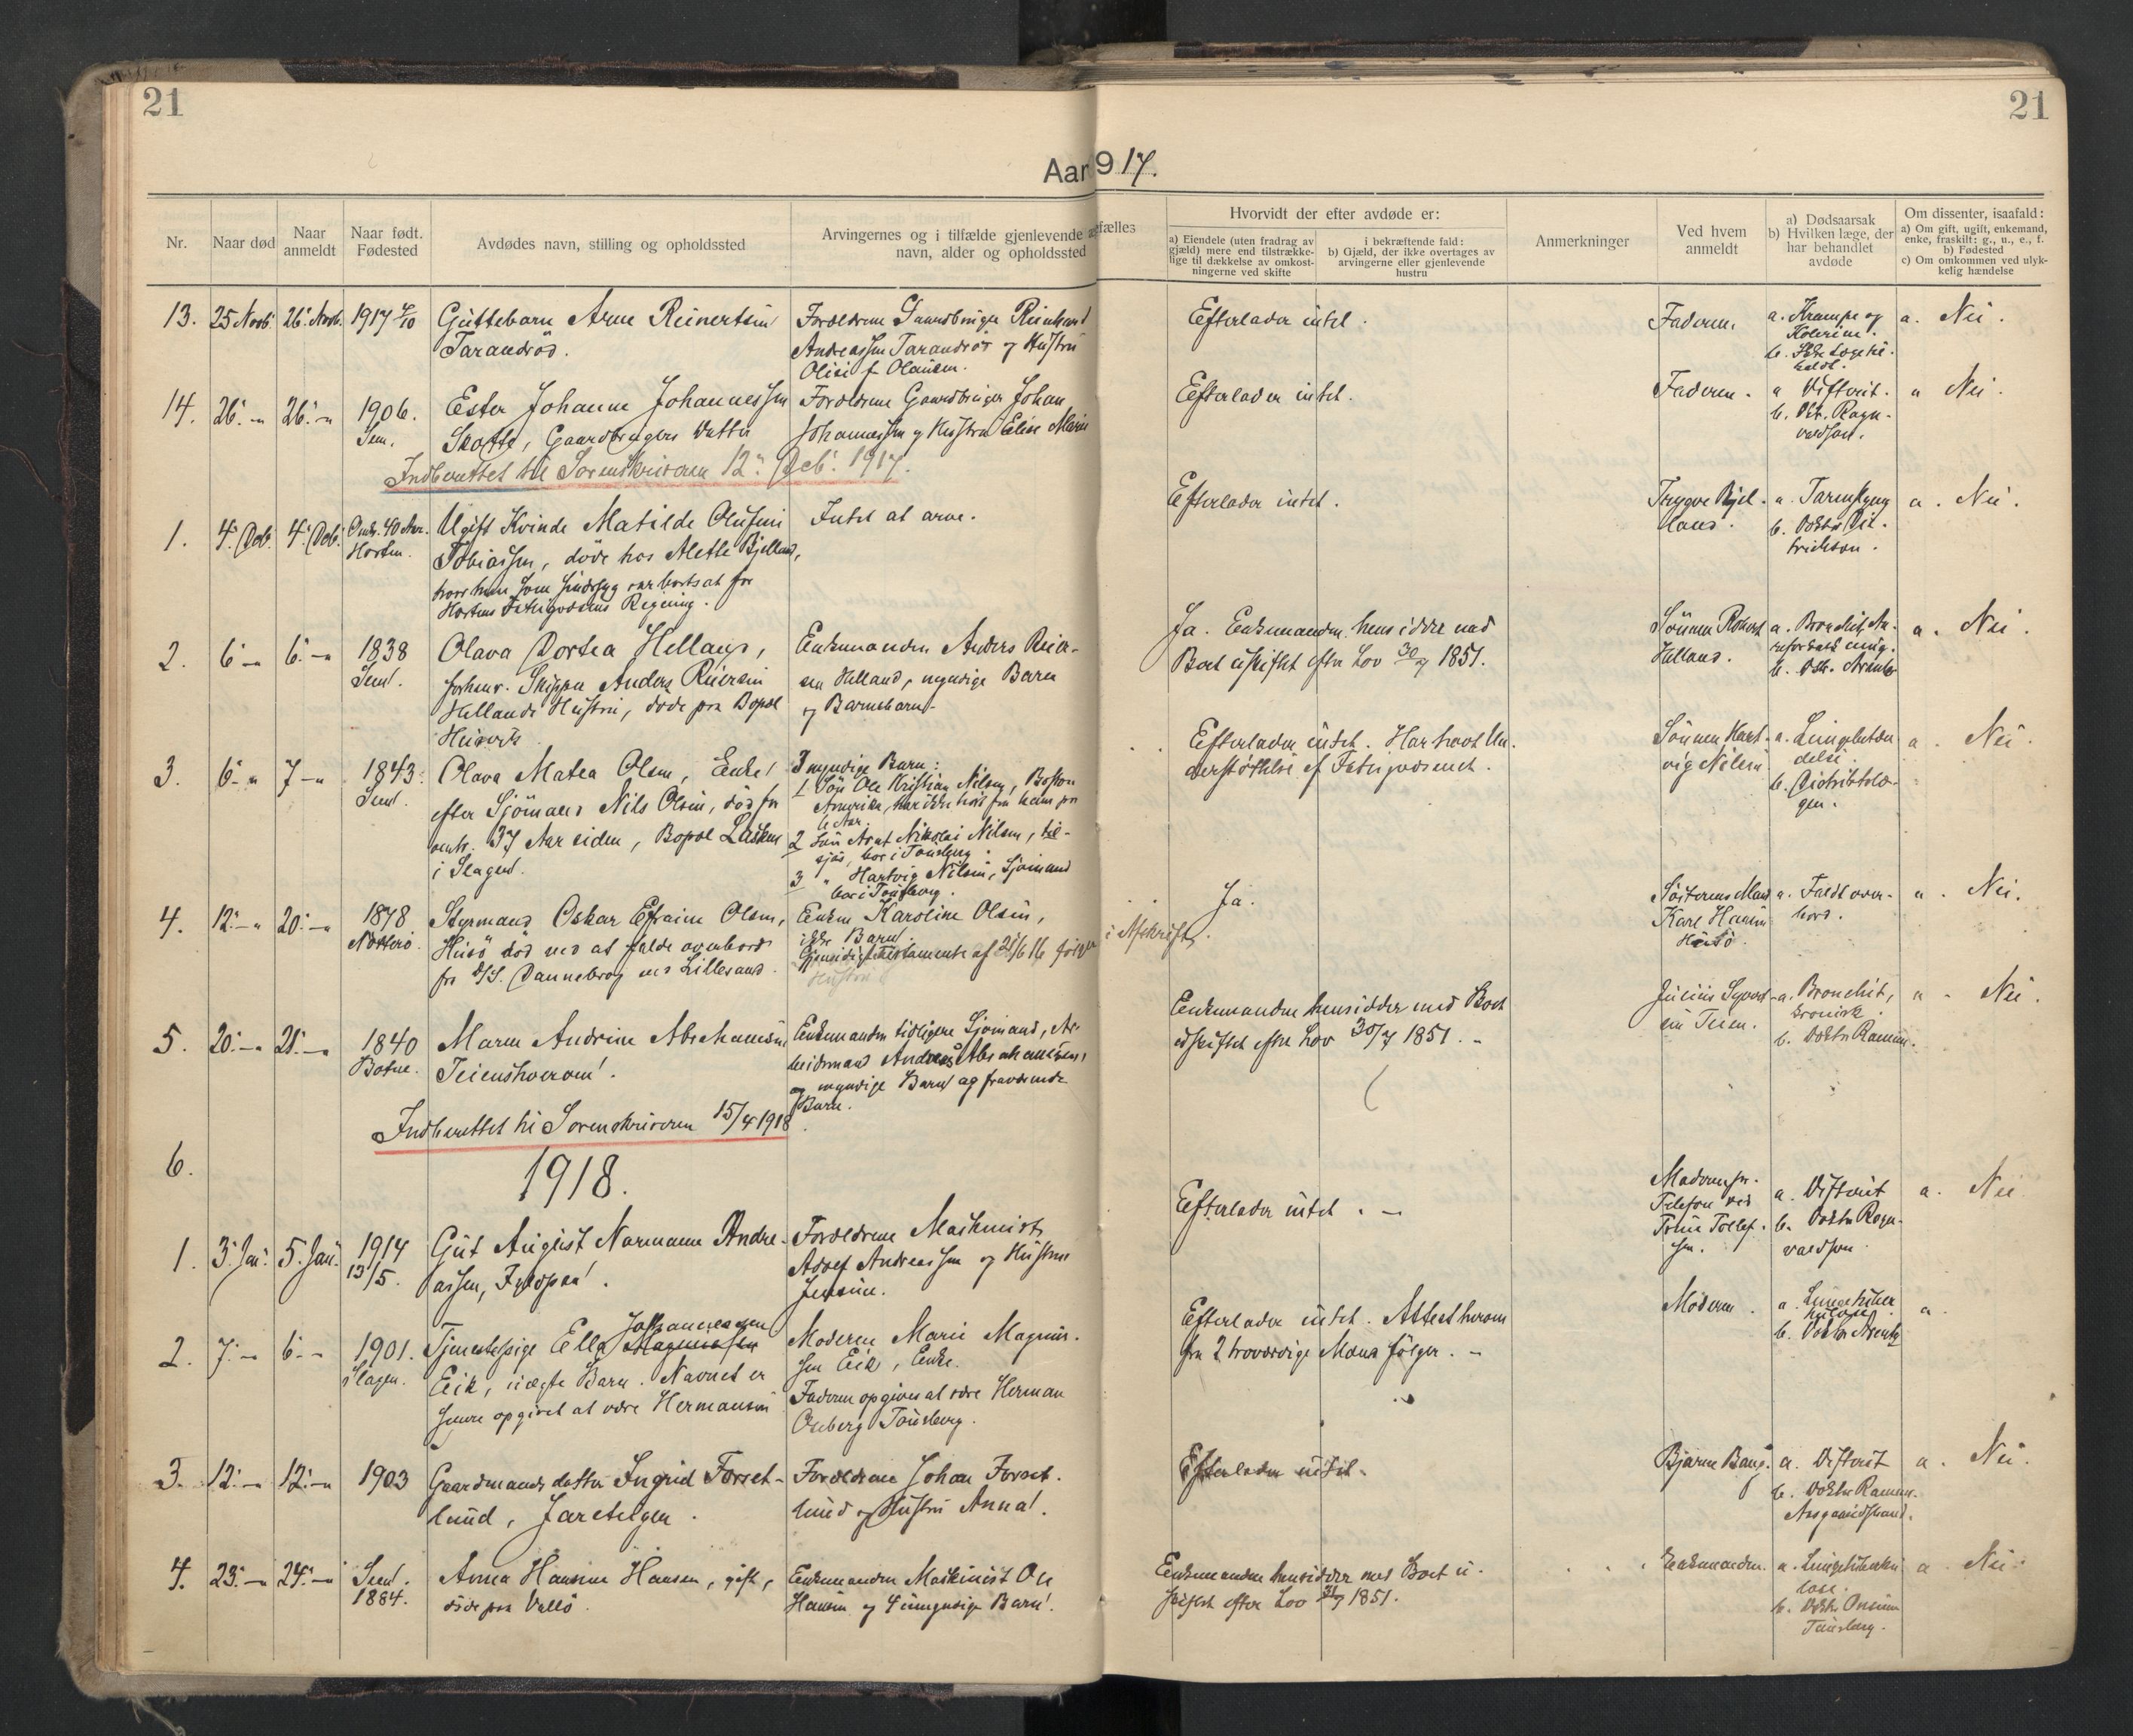 21
21
Aar 1917.
Nr.
Naar død
Naar anmeldt
Naar født. Fødested
Avdødes navn, stilling og opholdssted
Arvingernes og i tilfælde gjenlevende
navn, alder og opholdssted
Hvorvidt der efter avdøde er:
a) Eiendele (uten fradrag av
gjæld) mere end tilstrække-
lige til dækkelse av omkost-
ningerne ved skifte
i bekræftende fald:
b) Gjæld, der ikke overtages av
arvingerne eller gjenlevende
hustru
Anmerkninger
Ved hvem
anmeldt
a) Dødsaarsak
b) Hvilken læge, der
har behandlet
avdøde
Om dissenter, isaafald:
a) Om gift, ugift, enkemand,
enke, fraskilt: g., u., e., f.
b) Fødested
c) Om omkommen ved ulyk-
kelig hændelse
13. 25 Novb. 26. Novb. 1917
Guttebarn Arne Reinertsen
Tarandrød.
Forældrene Gaardbruger Reinhard
Andreassen Tarandrød og Hustru
Olise f. Olausen.
Efterlader intet.
Faderen.
a. Krampe og
Kolerine.
b. Ikke Læge til-
kaldt.
a. Nei.
14. 26. 26. 1906.
Sem.
Ester Johanne Johannessen
Skotte, Gaardbrugers Datter
Forældrene Gaardbruger Johan
Johannessen og Hustru Elise Marie
Efterlader intet.
Faderen.
a Difterit.
b. Dkt. Ragn-
valdson.
a Nei.
Indberettet til Sorenskriveren 12. Dcb. 1917.
1. 4. Dcb. 4. Dcb. Omtr. 40 Aar.
Horten.
Ugift Kvinde Matilde Olufine
Tobiassen, døde hos Alette Bjelland,
hvor hun som sindssyg var bortsat for
Hortens Fattigvæsens Regning.
Intet at arve.
Efterlader intet.
Trygve Bjel-
land.
a. Tarmslyng
b. Doktor Die-
trichson.
a. Nei.
2. 6. 6. 1838
Sem.
Olava Dortea Helland,
forhenv. Skipper Anders Reiersen
Hellands Hustru, døde paa Bopæl
Enkemanden Anders Reier-
sen Helland, myndige Barn
og Barnebarn.
Ja. Enkemanden hensidder med
Boet uskiftet efter Lov 30/7 1851.
Sønnen Robert
Helland.
a. Bronchit,
b. Dok. Arentz
a. Nei.
3. 6. 7 1843
Sem.
Olava Matea Olsen, Enke
efter Sjømand Nils Olsen, død for
omtr. 37 Aar siden, Bopæl
i Slagen.
3 myndige Barn:
1 Søn Ole Kristian Nilsen, Boston
Amerika, har ikke hørt fra ham paa
6 Aar.
2 Søn Arnt Nikolai Nilsen, til-
sjøs, bor i Tønsberg
3 " Hartvig Nilsen, Sjømand
bor i Tønsberg.
Efterlader intet. Har havt Un-
derstøttelse af Fattigvæsenet.
Sønnen Hart-
vig Nilsen
a. Lungebetæn-
delse.
b. Distriktslæ-
gen.
a Nei.
4. 12. 20. 1878
Nøtterø.
Styrmand Oskar Efraim Olsen,
Husø død ved at falde overbord
fra D/S. Dannebrog ved Lillesand.
Enken Karoline Olsen,
ikke Barn.
Gjensidigt Testamente af 28/6 16 følger
i Afskrift.
Ja.
Søsterens Mand
Karl Hansen
Husø.
a. Faldt over-
bord.
a. Nei.
5. 20. 28. 1840
Botne.
Maren Andrine Abrahamsen
Teienskoven.
Enkemanden tidligere Sjømand, Ar-
beidsmand Andreas Abrahamsen,
og myndige Barn og fraværende
Barn.
Enkemanden hensidder med Boet
uskiftet efter Lov 30/7 1851.
Julius Syvert-
sen Teien.
a. Bronchit,
kronisk.
b. Doktor Ramm.
a. Nei.
Indberettet til Sorenskriveren 15/4 1918
6.
1918.
1. 3. Jan. 5. Jan. 1914
13/5.
Gut August Normann Andre-
assen,
Forældrene Maskinist
Adolf Andreassen og Hustru
Jensine.
Efterlader intet.
Moderen pr.
Telefon ved
Trine Tollef-
sen.
a. Difterit
b. Doktor Ragn-
valdson.
a. Nei
2. 7. 6. 1901.
Slagen.
Tjenestepige Ella Magnussen Johannessen
Eik, uægte Barn. Navnet er
senere opgivet at være Hermansen
Moderen Marie Magnus-
sen Eik, Enke.
Faderen opgives at være Herman
Tønsberg.
Efterlader intet. Attest herom
fra 2 troværdige Mænd følger.
Moderen.
a. Lungetuber-
kulose.
b. Doktor Arentz
a.
3. 12. 12. 1903
Gaardmands datter Ingrid Forset-
lund, Jareteigen.
Forældrene Johan Forset-
lund og Hustru Anna.
Efterlader intet.
Bjarne Bang.
a. Difterit
b. Doktor Ramm.
Aasgaardstrand.
a. Nei.
4. 23. 24. Sem.
1884.
Anna Hansine Hansen, gift,
døde paa Vallø.
Enkemanden Maskinist Ole
Hansen og 4 umyndige Barn.
Enkemanden hensidder med Boet u-
skiftet efter Lov 30/7 1851.
Enkemanden.
a. Lungetuberku-
lose.
b. Dokt.
Tønsberg.
a Nei.